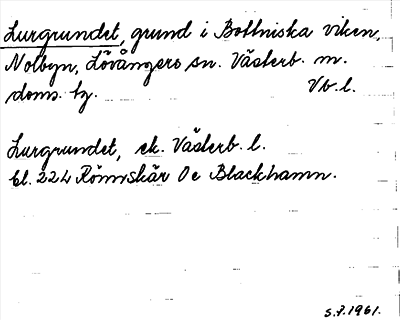 Lurgrundet, grund i Bottniska viken,
Nolbyn, Lövångers sn. Västerb. m.
doms. hg. Vb. l.
Lurgrundet, ek. Västerb. l.
bl. 224 Römskär Oe Blackhamn.
S.J. 1961.